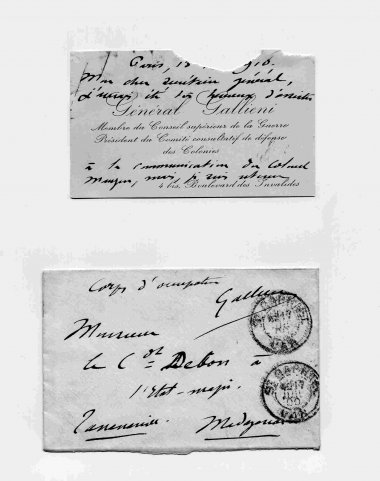 Paris, 18 1910.
Mon cher secrétaire général,
J'aurais été très heureux d'assister
Général Gallieni
Membre du Conseil supérieur de la Guerre
Président du Comité consultatif de défense
des Colonies
à la communication du Colonel
Mangin, mais, je suis retenu
4 bis, Boulevard des Invalides
Corps d'occupation
Gallieni
Monsieur
le Cel Debon à
l'Etat-major
Tananarive. Madagascar
ST RAPHAEL
VAR
ST RAPHAEL
VAR